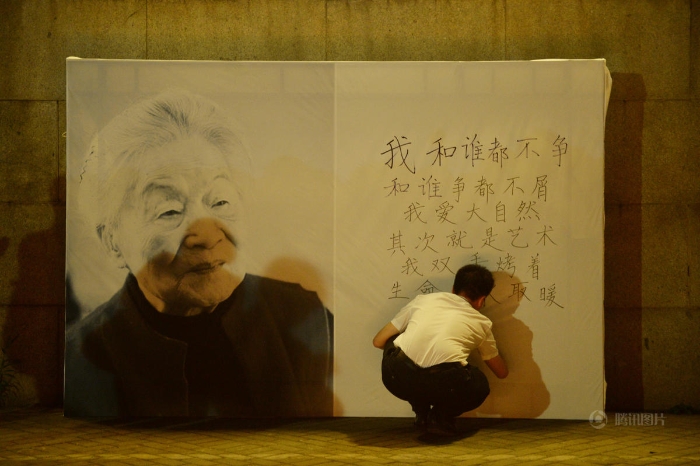 我和谁都不争
和谁争都不屑
我爱大自然
其次就是艺术
我双手烤着
生命 取暖
腾讯图片